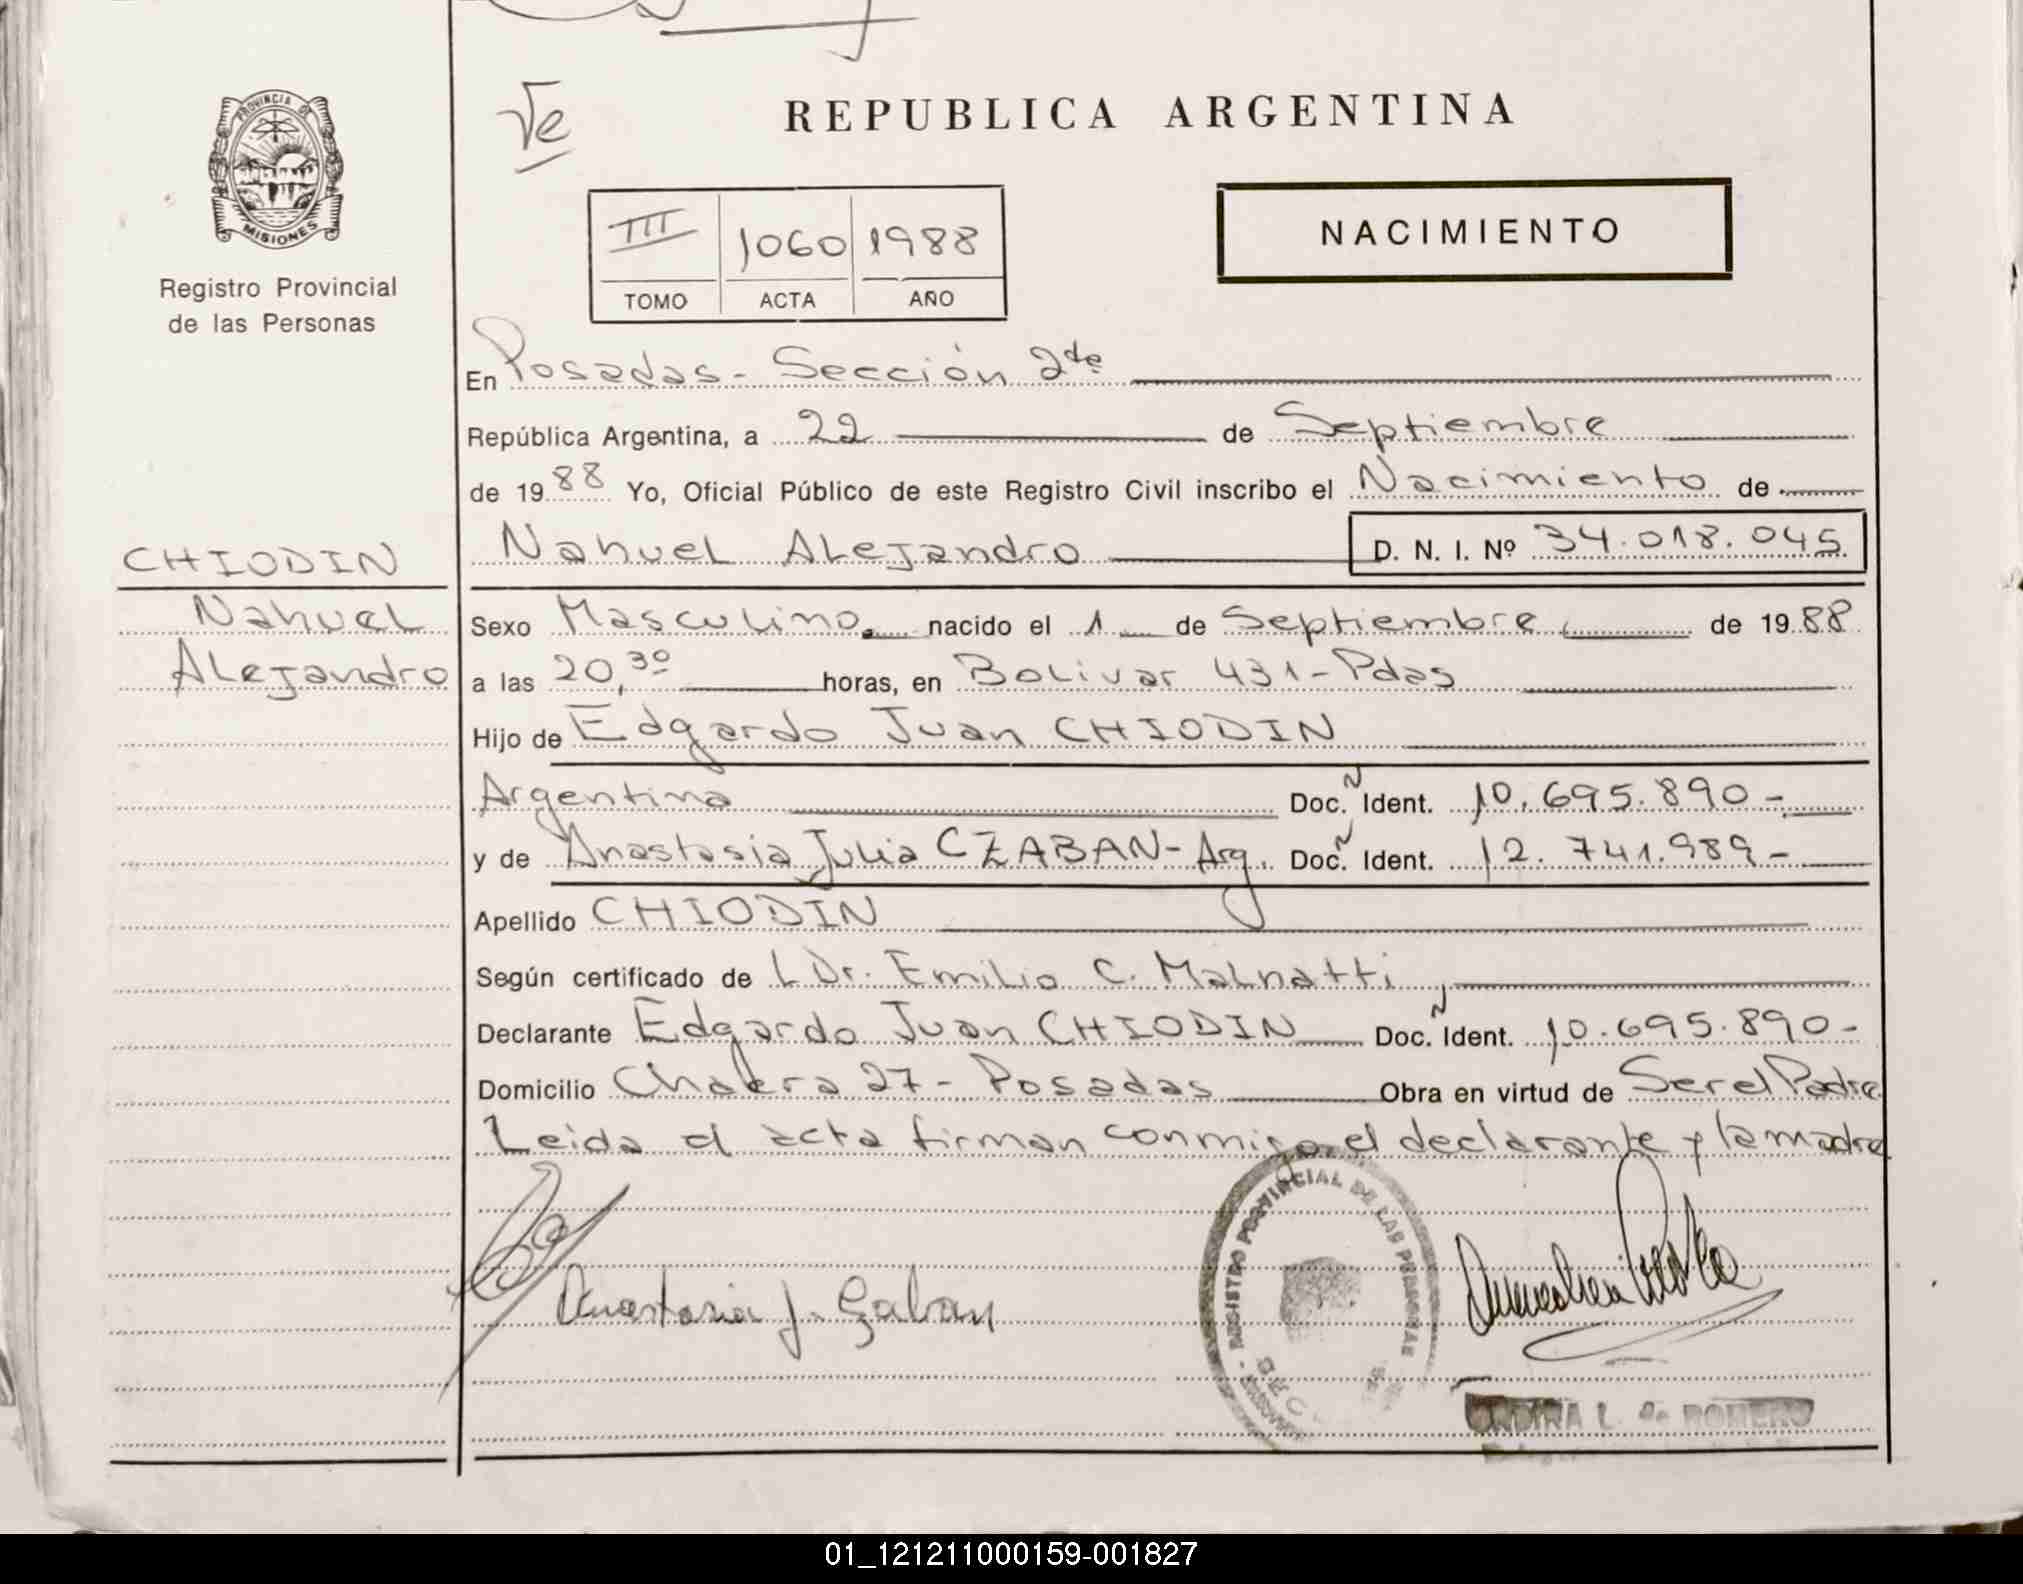 PROVINCIA DE
MISIONES
Registro Provincial
de las Personas
CHIODIN
Nahuel
Alejandro
REPUBLICA ARGENTINA
III 1060 1988
TOMO ACTA AÑO
NACIMIENTO
En Posadas - Sección 2da
República Argentina, a 22 de Septiembre
de 1988 Yo, Oficial Público de este Registro Civil inscribo el Nacimiento de
Nahuel Alejandro D. N. I. Nº 34.018.045
Sexo Masculino nacido el 1 de Septiembre de 1988
a las 20,30 horas, en Bolivar 431 - Pdas
Hijo de Edgardo Juan CHIODIN
Argentina Doc. Ident. 10.695.890-
y de Anastasia Julia CZABAN - Arg. Doc. Ident. 12.741.989-
Apellido CHIODIN
Según certificado de L Dr. Emilio C. Malnatti
Declarante Edgardo Juan CHIODIN Doc. Ident. 10.695.890-
Domicilio Chakra 27 - Posadas Obra en virtud de Ser el Padre
Leida el acta firman conmigo el declarante y la madre
REGISTRO PROVINCIAL DE LAS PERSONAS
Anastasia J. Czaban
L. de ROMERO
01_121211000159-001827